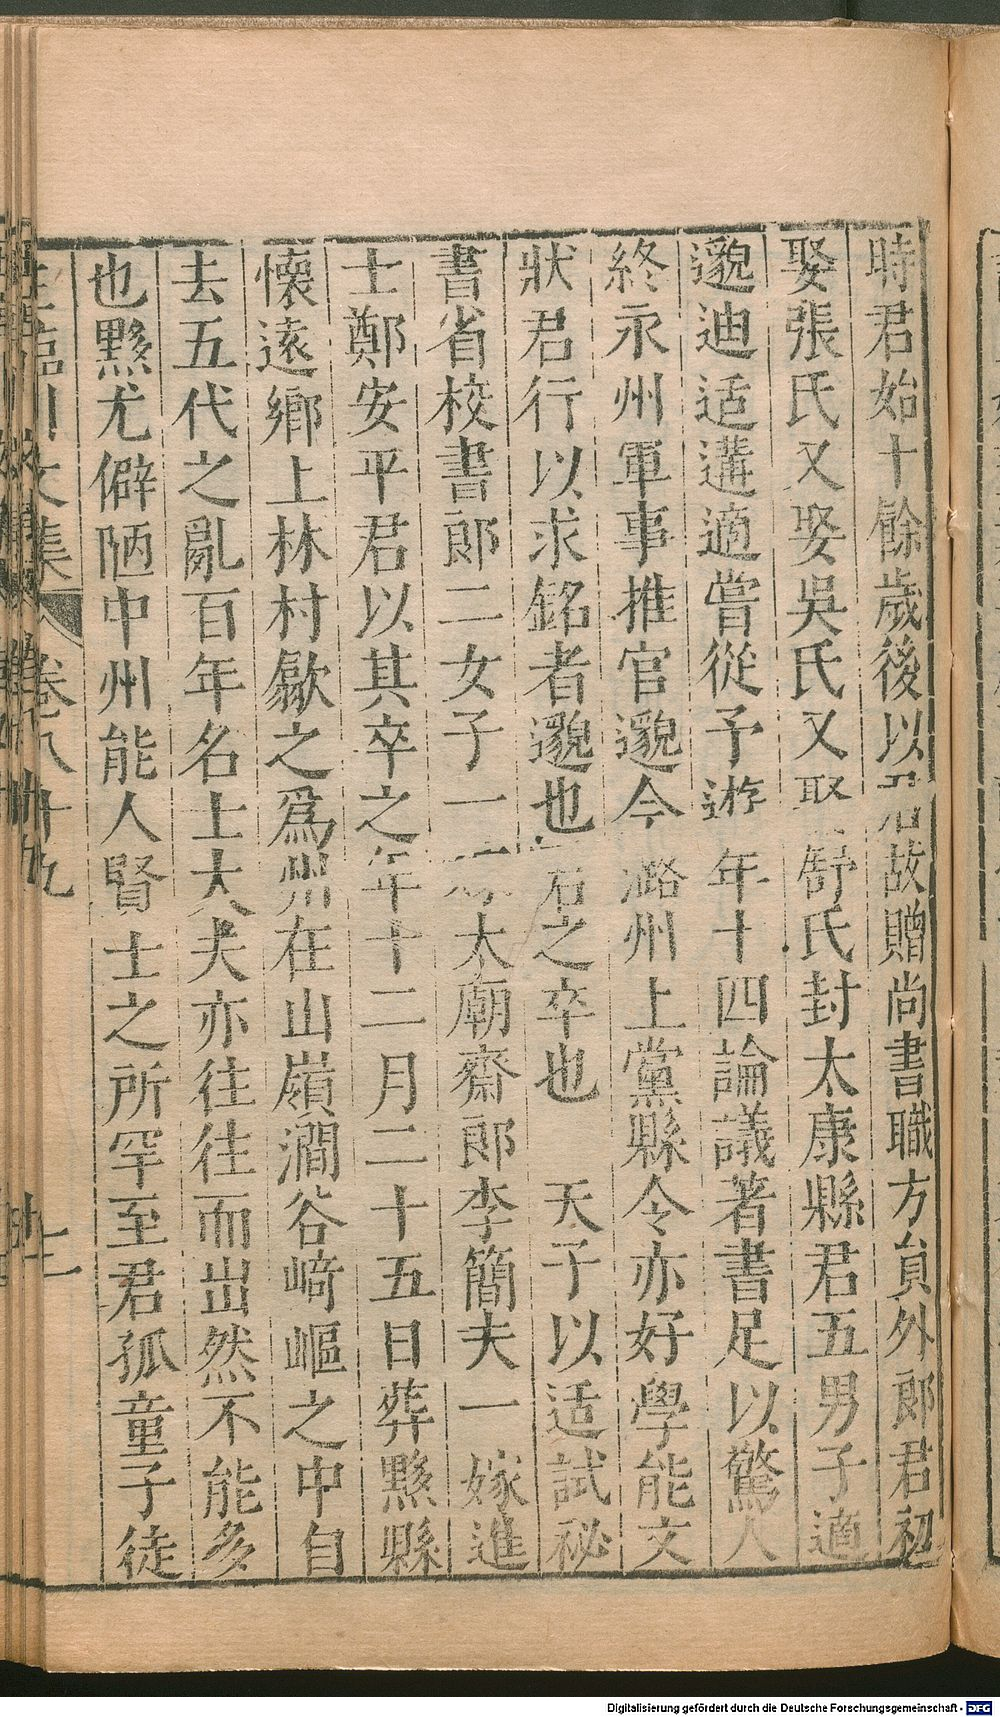 時君始十餘歲後以君故贈尚書職方員外郎君初
娶張氏又娶吳氏又娶舒氏封太康縣君五男子適
邈迪适遘適嘗從予遊年十四論議著書足以驚人
終永州軍事推官邈今潞州上黨縣令亦好學能文
狀君行以求銘者邈也君之卒也　天子以适試秘
書省校書郎二女子一嫁太廟齋郎李簡夫一嫁進
士鄭安平君以其卒之年十二月二十五日葬黟縣
懷遠鄉上林村歙之為州在山嶺澗谷崎嶇之中自
去五代之亂百年名士大夫亦往往而出然不能多
也黟尤僻陋中州能人賢士之所罕至君孤童子徒
王臨川文集　卷八十九　十一
Digitalisierung gefördert durch die Deutsche Forschungsgemeinschaft - DFG